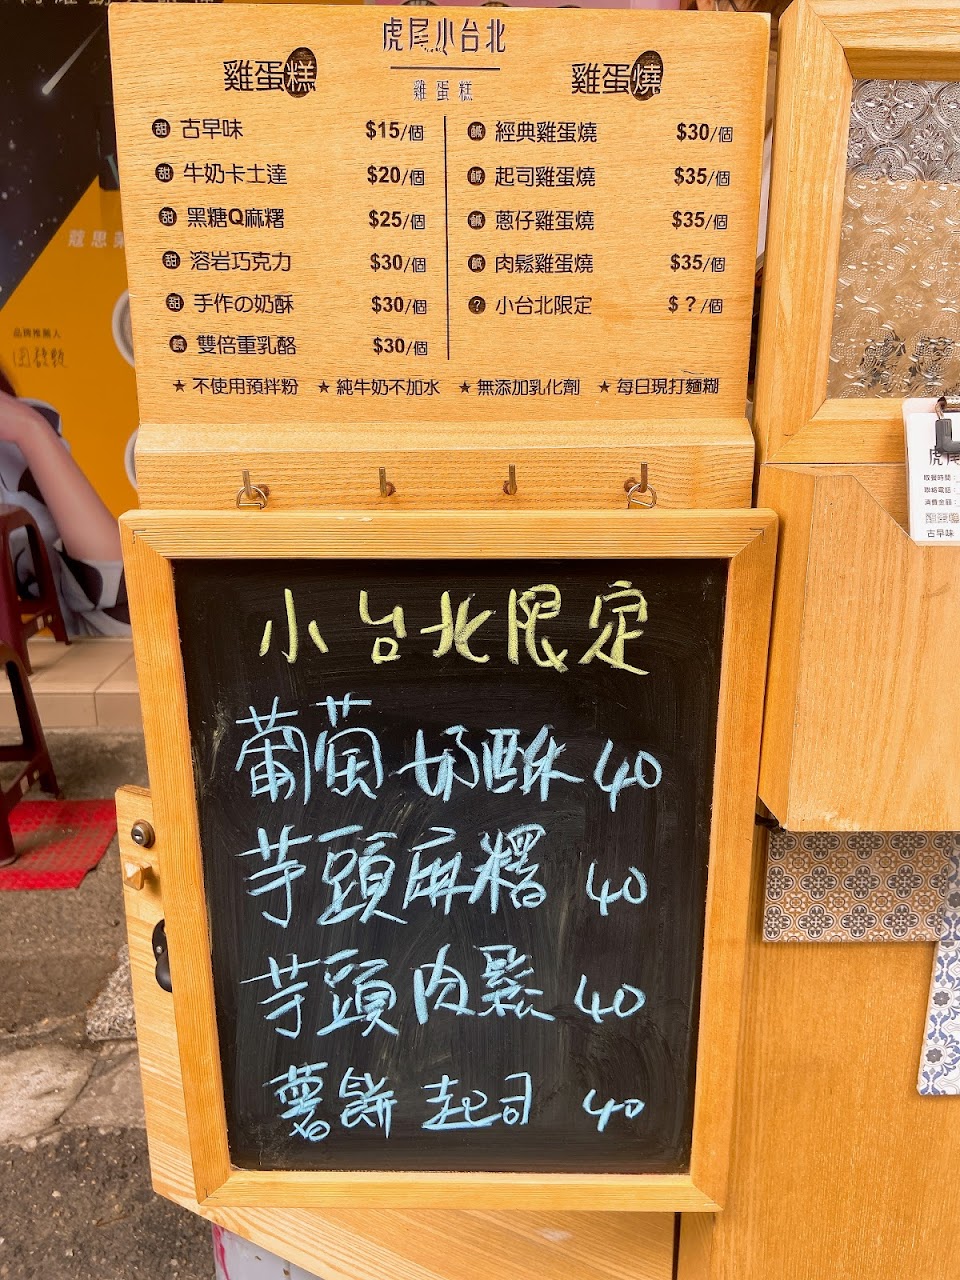 虎尾小台北
雞蛋糕
雞蛋糕
雞蛋燒
甜 古早味 $15/個
甜 牛奶卡士達 $20/個
甜 黑糖Q麻糬 $25/個
甜 溶岩巧克力 $30/個
甜 手作の奶酥 $30/個
鹹 雙倍重乳酪 $30/個
鹹 經典雞蛋燒 $30/個
鹹 起司雞蛋燒 $35/個
鹹 蔥仔雞蛋燒 $35/個
鹹 肉鬆雞蛋燒 $35/個
? 小台北限定 $ ? /個
★ 不使用預拌粉 ★ 純牛奶不加水 ★ 無添加乳化劑 ★ 每日現打麵糊
小台北限定
葡萄奶酥 40
芋頭麻糬 40
芋頭肉鬆 40
薯餅起司 40
品牌推薦人
虎尾
取餐時間:
聯絡電話:
消費金額:
雞蛋糕
古早味